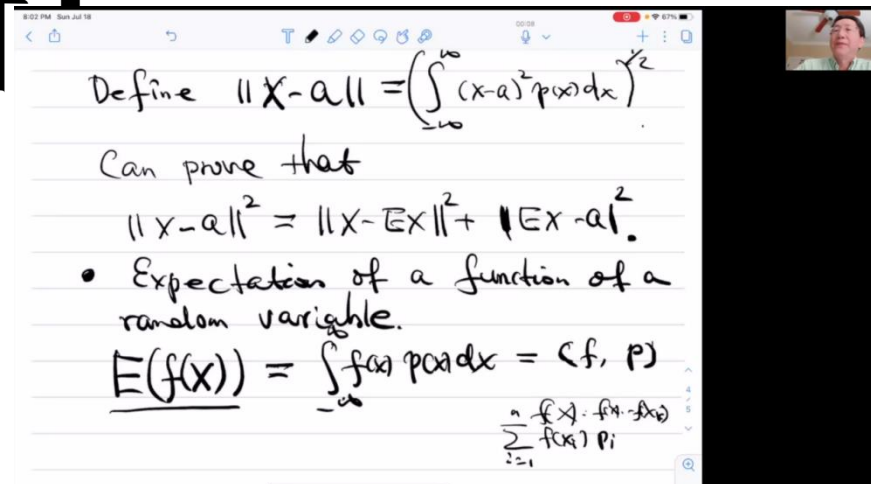 8:02 PM Sun Jul 18
00:08
67%
Define ||X-a|| = (∫_{-∞}^{∞} (x-a)² p(x) dx)^{1/2}
Can prove that
||X-a||² = ||X-EX||² + |EX-a|².
• Expectation of a function of a
random variable.
E(f(X)) = ∫_{-∞}^{∞} f(x) p(x) dx = (f, p)
∑_{i=1}^{n} f(xᵢ) pᵢ
4
5